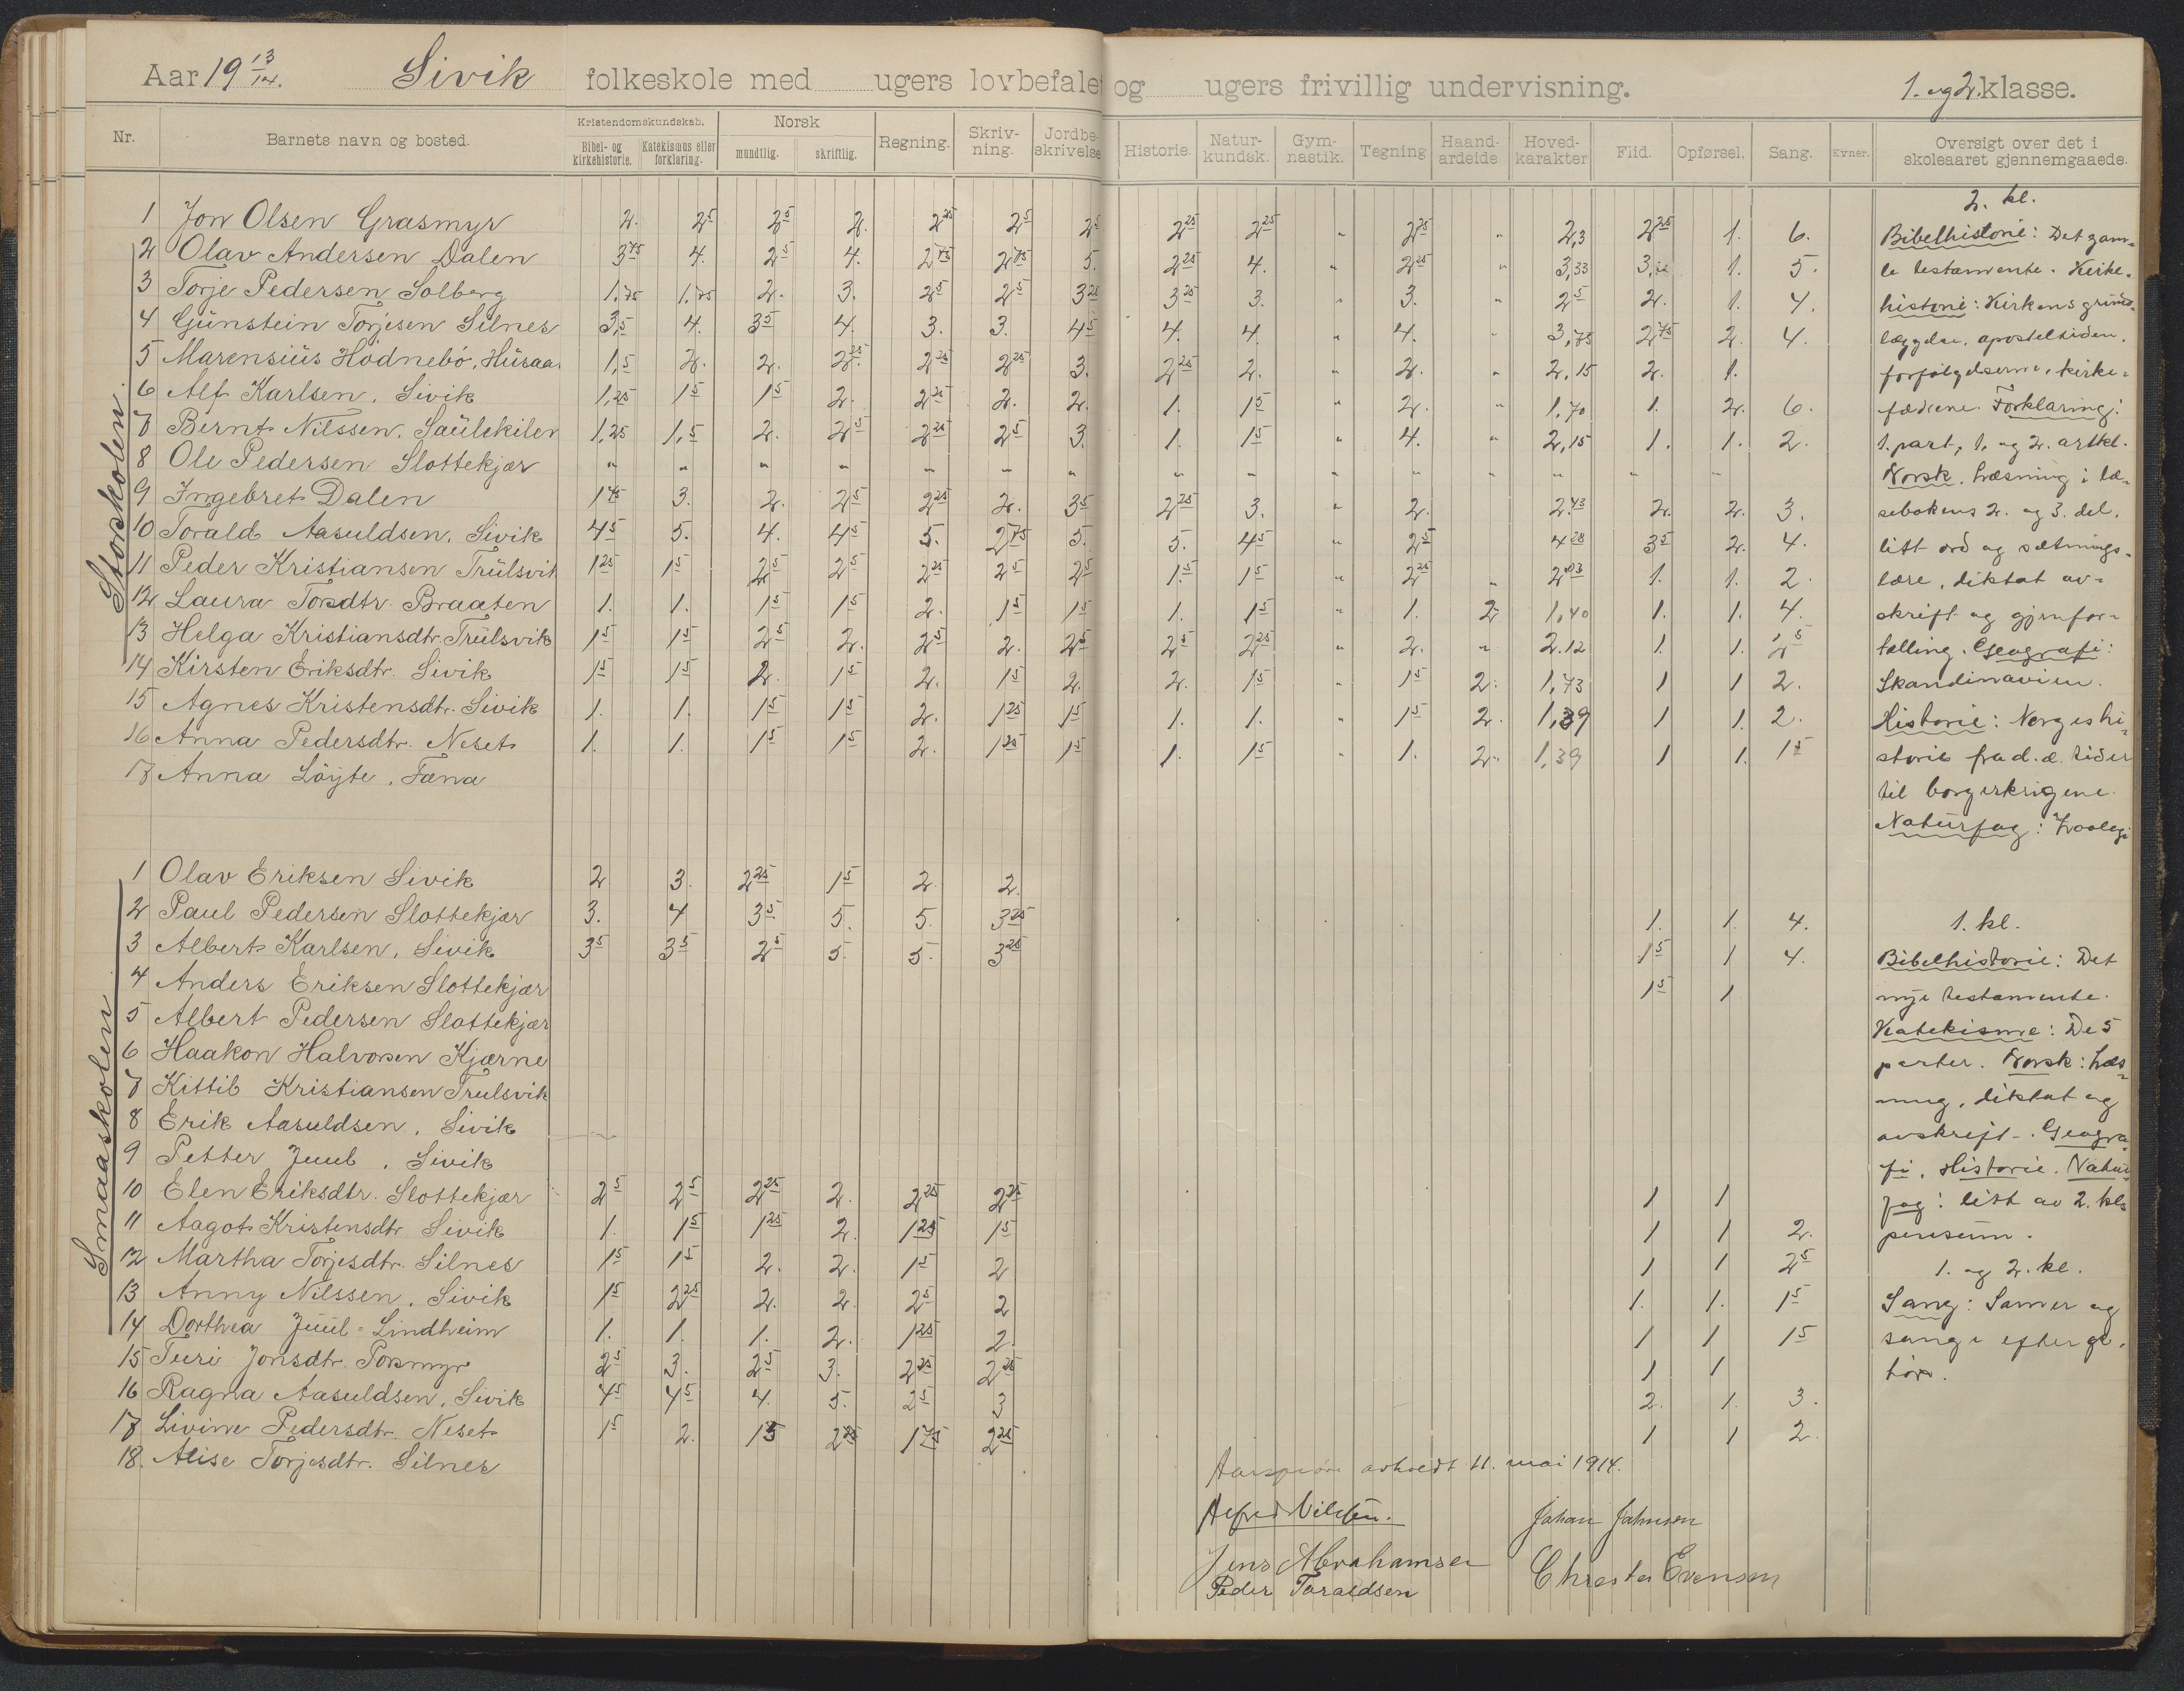 Aar 19 13/14. Sivik folkeskole med ugers lovbefalet og ugers frivillig undervisning. 1. og 2. klasse.
Nr. Barnets navn og bosted. Kristendomskundskab. Bibel- og kirkehistorie. Katekismus eller forklaring. Norsk mundtlig. skriftlig. Regning. Skriv-ning. Jordbe-skrivelse Historie. Natur-kundsk. Gym-nastik. Tegning Haand-arbeide Hoved-karakter Flid. Opførsel. Sang. Evner. Oversigt over det i skoleaaret gjennemgaaede.
Storskolen
1 Jon Olsen Grasmyr 2. 2 5 2 5 2. 2 25 2 5 2 5 2 25 2 25 " 2 25 " 2,3 2 25 1. 6.
2 Olav Andersen Dalen 3 75 4. 2 5 4. 2 75 2 75 5. 2 25 4. " 2 25 " 3,33 1. 5.
3 Torje Pedersen Solberg 1,75 1,75 2. 3. 2 5 2 5 3 25 3 25 3. " 3. " 2 5 2. 1. 4.
4 Gunstein Torjesen Silnes 3,5 4. 3 5 4. 3. 3. 4 5 4. 4. " 4. " 3,75 2 75 2. 4.
5 Marensius Hødnebø, Husaa. 1,5 2. 2. 2 25 2 25 2 25 3. 2 25 2. " 2. " 2,15 2. 1.
6 Alf Karlsen, Sivik 1,25 1 5 1 5 2. 2 25 2. 2. 1. 1 5 " 2. " 1,70 1. 2. 6.
7 Bernt Nilssen, Saulekilen 1,25 1,5 2. 2 5 2 25 2 5 3. 1. 1 5 " 4. " 2,15 1. 1. 2.
8 Ole Pedersen Slottekjær " " " " " " " " " " " " " " "
9 Ingebret Dalen 1 75 3. 2. 2 5 2 25 2. 3 5 2 25 3. " 2. 2.43 2. 2. 3.
10 Torald Aasuldsen, Sivik 4 5 5. 4. 4 5 5. 2 75 5. 5. 4 5 " 2 5 4 28 3 5 2. 4.
11 Peder Kristiansen Trulsvik 1 25 1 5 2 5 2 5 2 25 2 5 2 5 1. 5 1 5 " 2 25 " 2 03 1. 1. 2.
12 Laura Torsdtr. Braaten 1. 1. 1 5 1 5 2. 1 5 1 5 1. 1 5 " 1. 2 1,40 1. 1. 4.
13 Helga Kristiansdtr. Trulsvik 1 5 1 5 2 5 2. 2 5 2. 2 5 2 5 2 25 " 2. " 2.12 1. 1. 2 5
14 Kirsten Eriksdtr. Sivik 1 5 1 5 2. 1 5 2. 1 5 2. 2. 1 5 " 1 5 2. 1,73 1 1 2.
15 Agnes Kristensdtr. Sivik 1. 1. 1 5 1 5 2. 1 25 1 5 1. 1. " 1 5 2. 1,39 1 1. 2.
16 Anna Pedersdtr. Neset 1. 1. 1 5 1 5 2. 1 25 1 5 1. 1 5 " 1. 2. 1,39 1 1. 1 5
17 Anna Löyte, Fæna
Smaaskolen
1 Olav Eriksen Sivik 2 3. 2 25 1 5 2. 2.
2 Paul Pedersen Slottekjær 3. 4 3 5 5. 5. 3 25 1. 1. 4.
3 Albert Karlsen, Sivik 3 5 3 5 2 5 5. 5. 3 25 1 5 1 4.
4 Anders Eriksen Slottekjær 1 5 1
5 Albert Pedersen Slottekjær
6 Haakon Halvorsen Kjærne
7 Kittil Kristiansen Trulsvik
8 Erik Aasuldsen, Sivik
9 Petter Juul, Sivik
10 Elen Eriksdtr. Slottekjær 2 5 2 5 2 25 2. 2 25 2 25 1 1
11 Aagot Kristensdtr Sivik 1. 1 5 1 25 2. 1 25 1 5 1 1 2.
12 Martha Torjesdtr. Silnes 1 5 1 5 2. 2. 1 5 2 1 1 2 5
13 Anny Nilssen, Sivik 1 5 2 25 2. 2. 2 5 2 1. 1. 1 5
14 Dorthea Juul-Lindheim 1. 1. 1. 2. 1 25 2 1 1 1 5
15 Turi Jonsdtr. Torsmyr 2 5 3. 2 5 3. 2 25 2 25 1 1
16 Ragna Aasuldsen, Sivik 4 5 4 5 4. 5. 2 5 3 2. 1. 3.
17 Livine Pedersdtr. Neset 1 5 2. 1 5 2 25 1 75 2 25 1 1 2
18. Alise Torjesdtr. Silnes
2. kl.
Bibelhistorie: Det gam-
le testamente. Kirke-
historie: Kirkens grund-
læggelse, aposteltiden,
forfølgelserne, kirke-
fædrene. Forklaring:
1. part, 1. og 2. artkl.
Norsk. Læsning i læ-
sebokens 2. og 3. del,
litt ord og sætnings-
lære, diktat av-
skrift og gjenfor-
tælling. Geografi:
Skandinavien.
Historie: Norges hi-
storie fra d. æ. tider
til borgerkrigene.
Naturfag: Zoologi
1. kl.
Bibelhistorie: Det
nye testamente.
Katekisme: De 5
parter. Norsk: Læs-
ning, diktat og
avskrift. Geogra-
fi. Historie. Natur-
fag: litt av 2. kls
pensum.
1. og 2. kl.
Sang: Salmer og
sange efter ge-
hør.
Aarsprøve avholdt 11. mai 1914.
Alfred Nilsen. Johan Johnsen
Jens Abrahamsen Christen Evensen
Peder Taraldsen